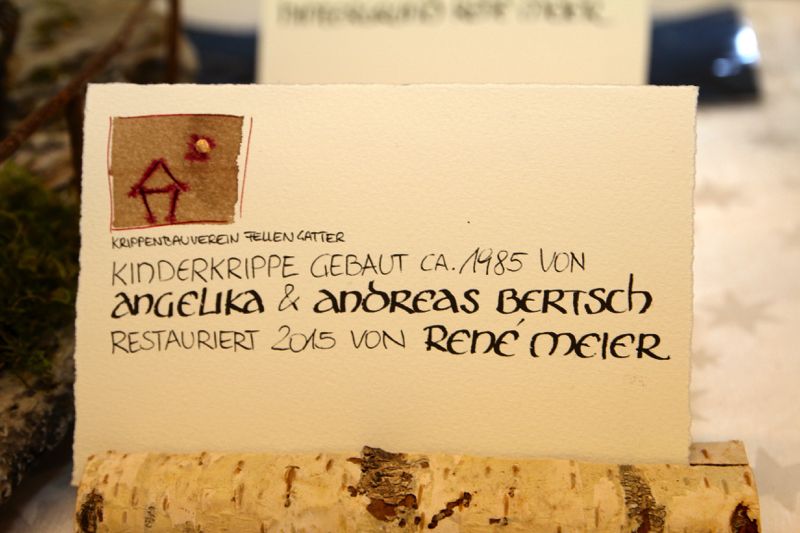 HINTERGRUND RENÉ MEIER
KRIPPENBAUVEREIN FELLENGATTER
KINDERKRIPPE GEBAUT CA. 1985 VON
ANGELIKA & ANDREAS BERTSCH
RESTAURIERT 2015 VON RENÉ MEIER